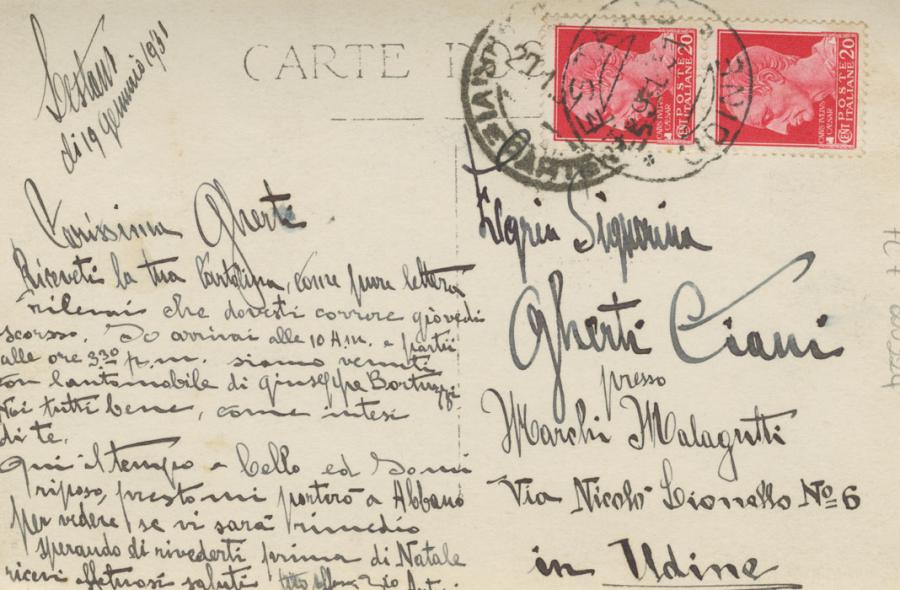 di 19 gennaio 1931
CARTE POS
POSTE ITALIANE
CENT 20
CAESAR
POSTE ITALIANE
CENT 20
CAESAR
UDINE
Carissima Gherti
Ricevetti la tua Cartolina, come pure lettera
rilevai che dovesti correre giovedi
scorso. Io arrivai alle 10 A.m. e partii
alle ore 3.30 p.m. siamo venuti
con l'automobile di Giuseppe Bortuzzi
Noi tutti bene, come intesi
di te.
Qui il tempo e bello ed Io mi
riposo, presto mi portirò a Abbano
per vedere se vi sara rimedio
sperando di rivederti prima di Natale
ricevi affetuosi saluti Zio
Egregia Signorina
Gherti Ciani
presso
Marchi Malagutti
Via Nicolò Lionello No 6
in Udine